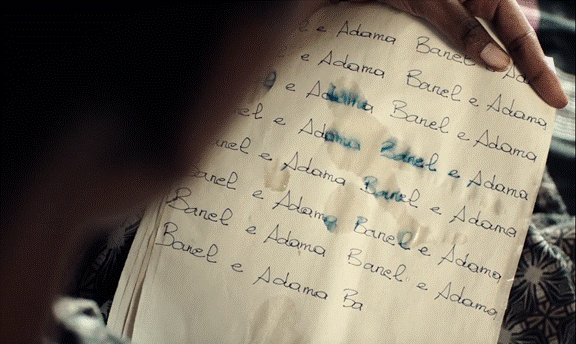 e Adama Banel Ad
e Adama Banel e Adama
e Adama Banel e Adama
el e Adama Banel e Adama
anel e Adama Banel e Adama
Banel e Adama Banel e Adama
Banel e Adama Banel e Adama
Banel e Adama Ba